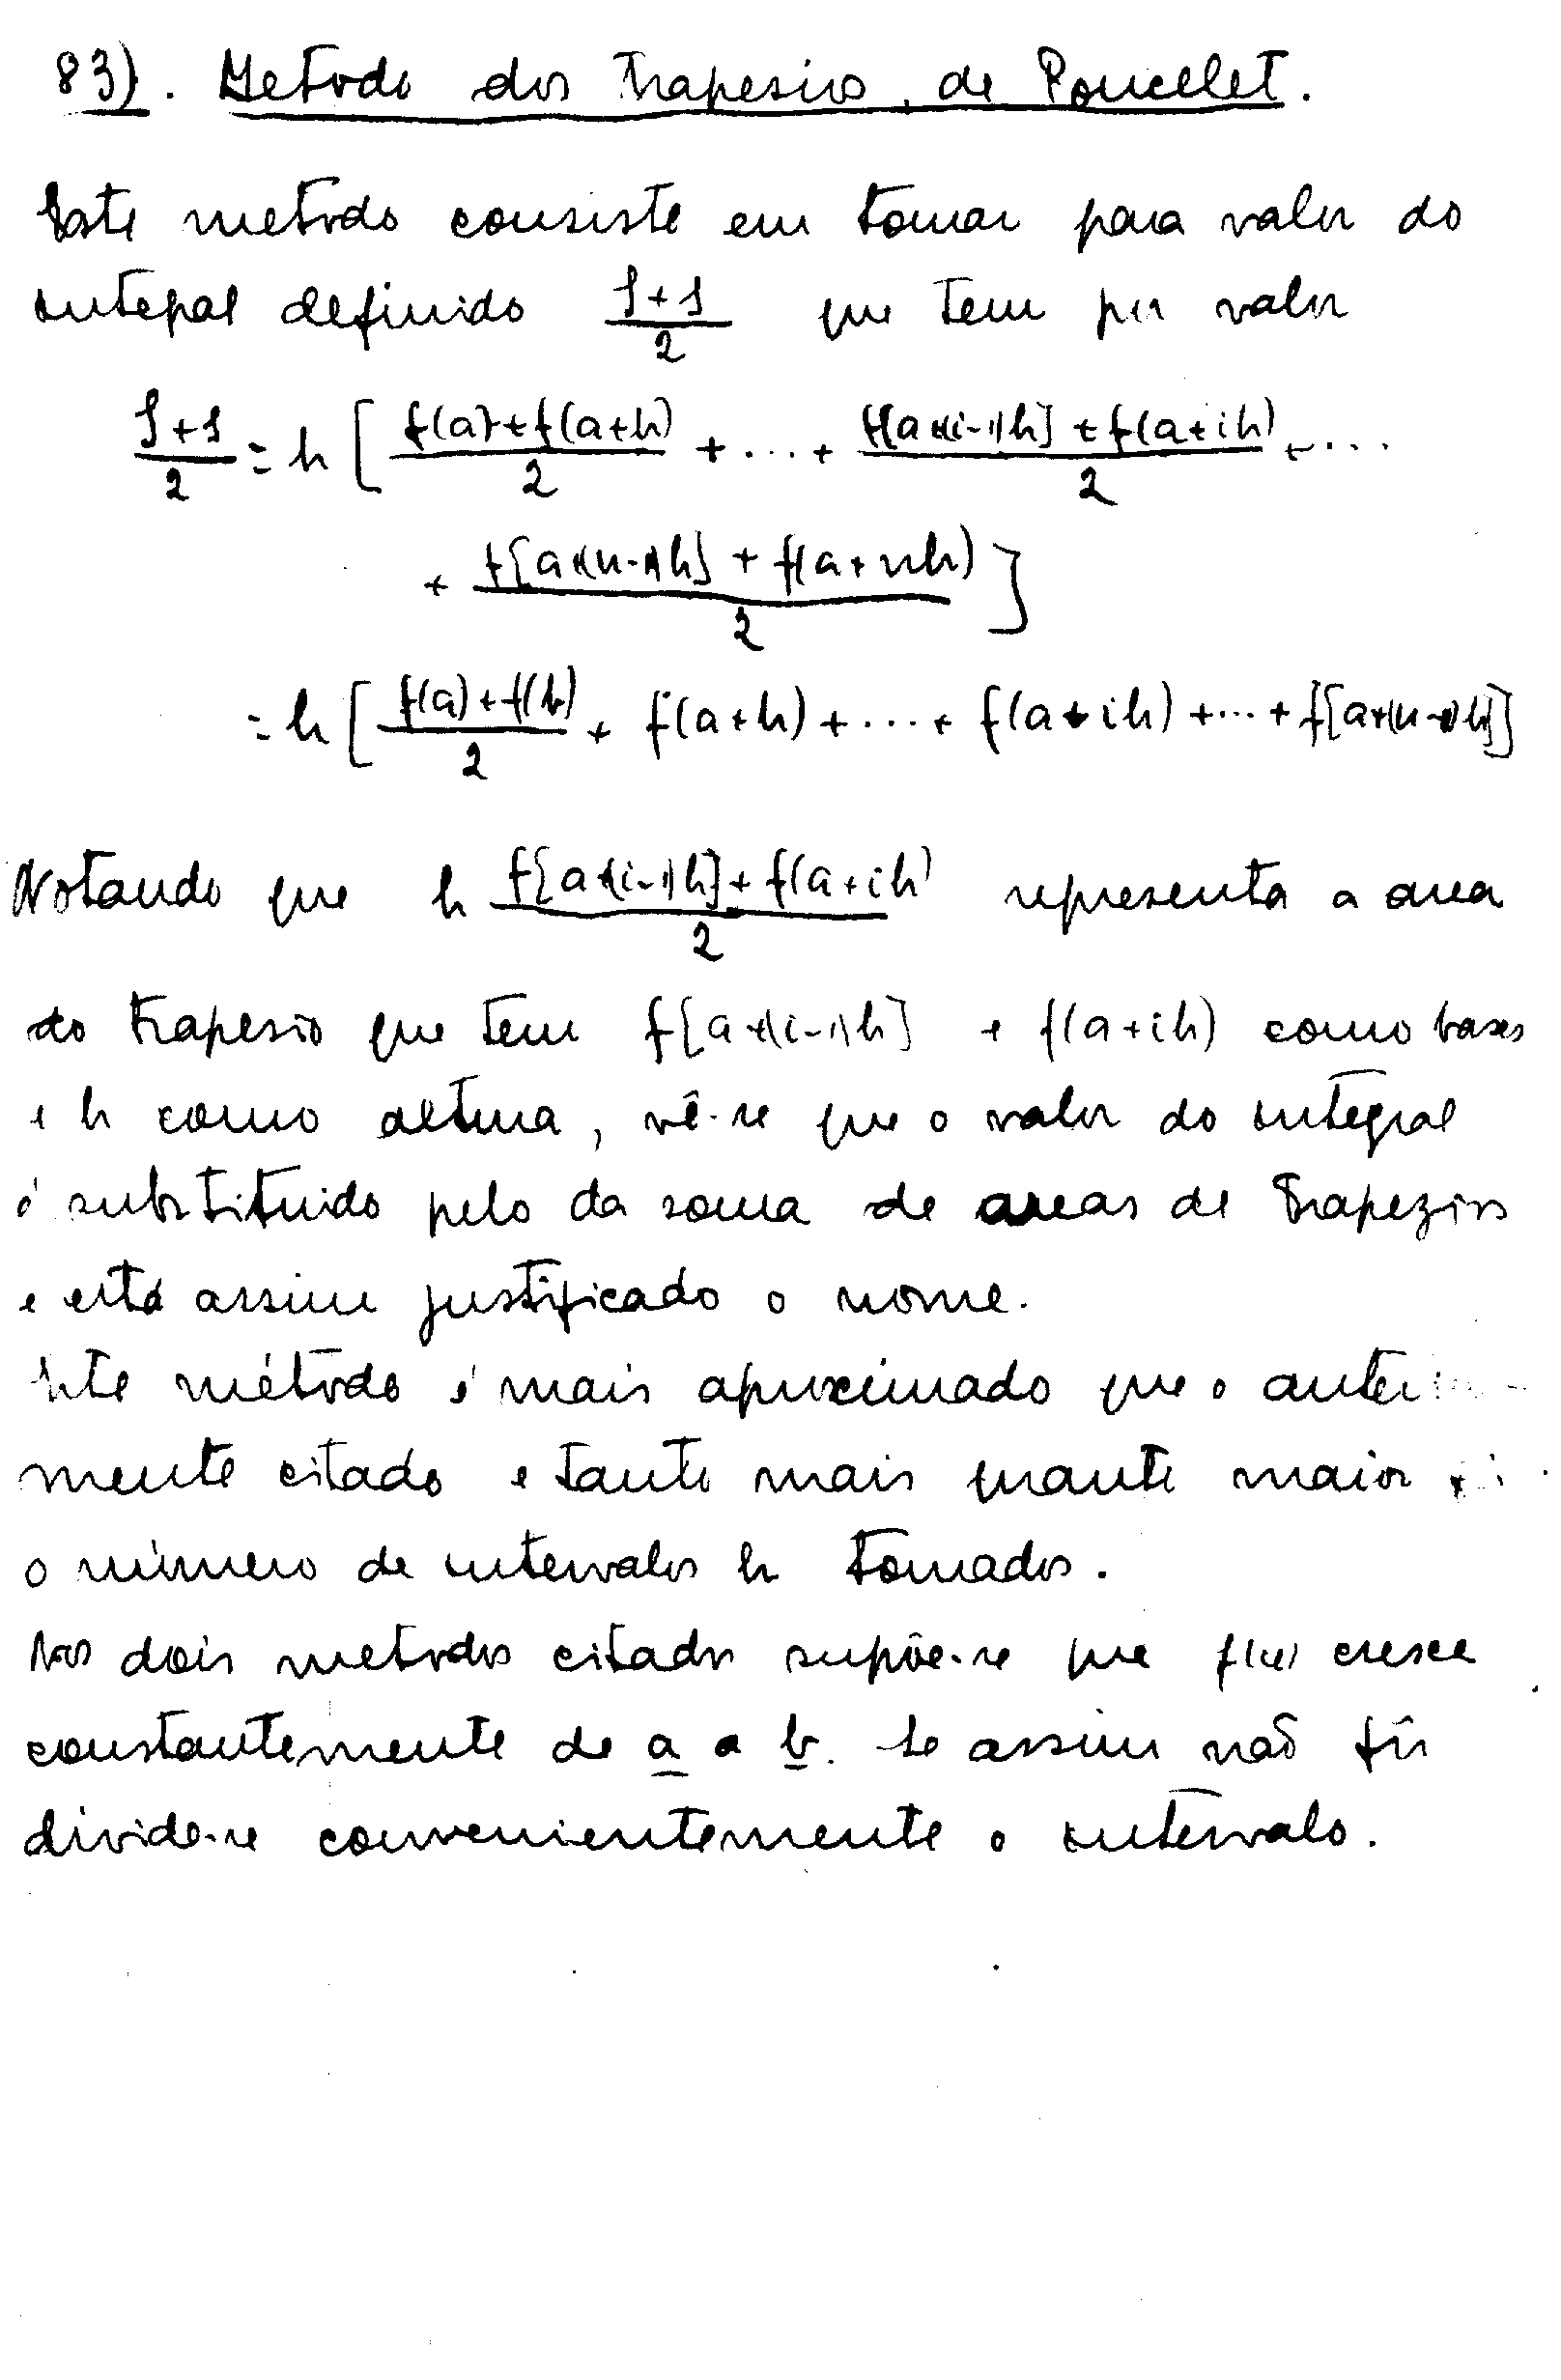 83). Metodo dos trapesios, de Poncelet.
Este metodo consiste em tomar para valor do
integral definido (S+s)/2 que tem por valor
(S+s)/2 = h [ (f(a)+f(a+h))/2 + ... + (f[a+(i-1)h] + f(a+ih))/2 + ...
+ (f[a+(n-1)h] + f(a+nh))/2 ]
= h [ (f(a)+f(b))/2 + f(a+h) + ... + f(a+ih) + ... + f[a+(n-1)h]]
Notando que h (f[a+(i-1)h] + f(a+ih))/2 representa a area
do trapesio que tem f[a+(i-1)h] e f(a+ih) como bases
e h como altura, vê-se que o valor do integral
é substituido pelo da soma de areas de trapezios
e está assim justificado o nome.
Este método é mais aproximado que o
mente citado e tanto mais quanto maior
o número de intervalos h tomados.
Nos dois metodos citados supõe-se que f(x) cresce
constantemente de a a b. Se assim não fôr
divide-se convenientemente o intervalo.